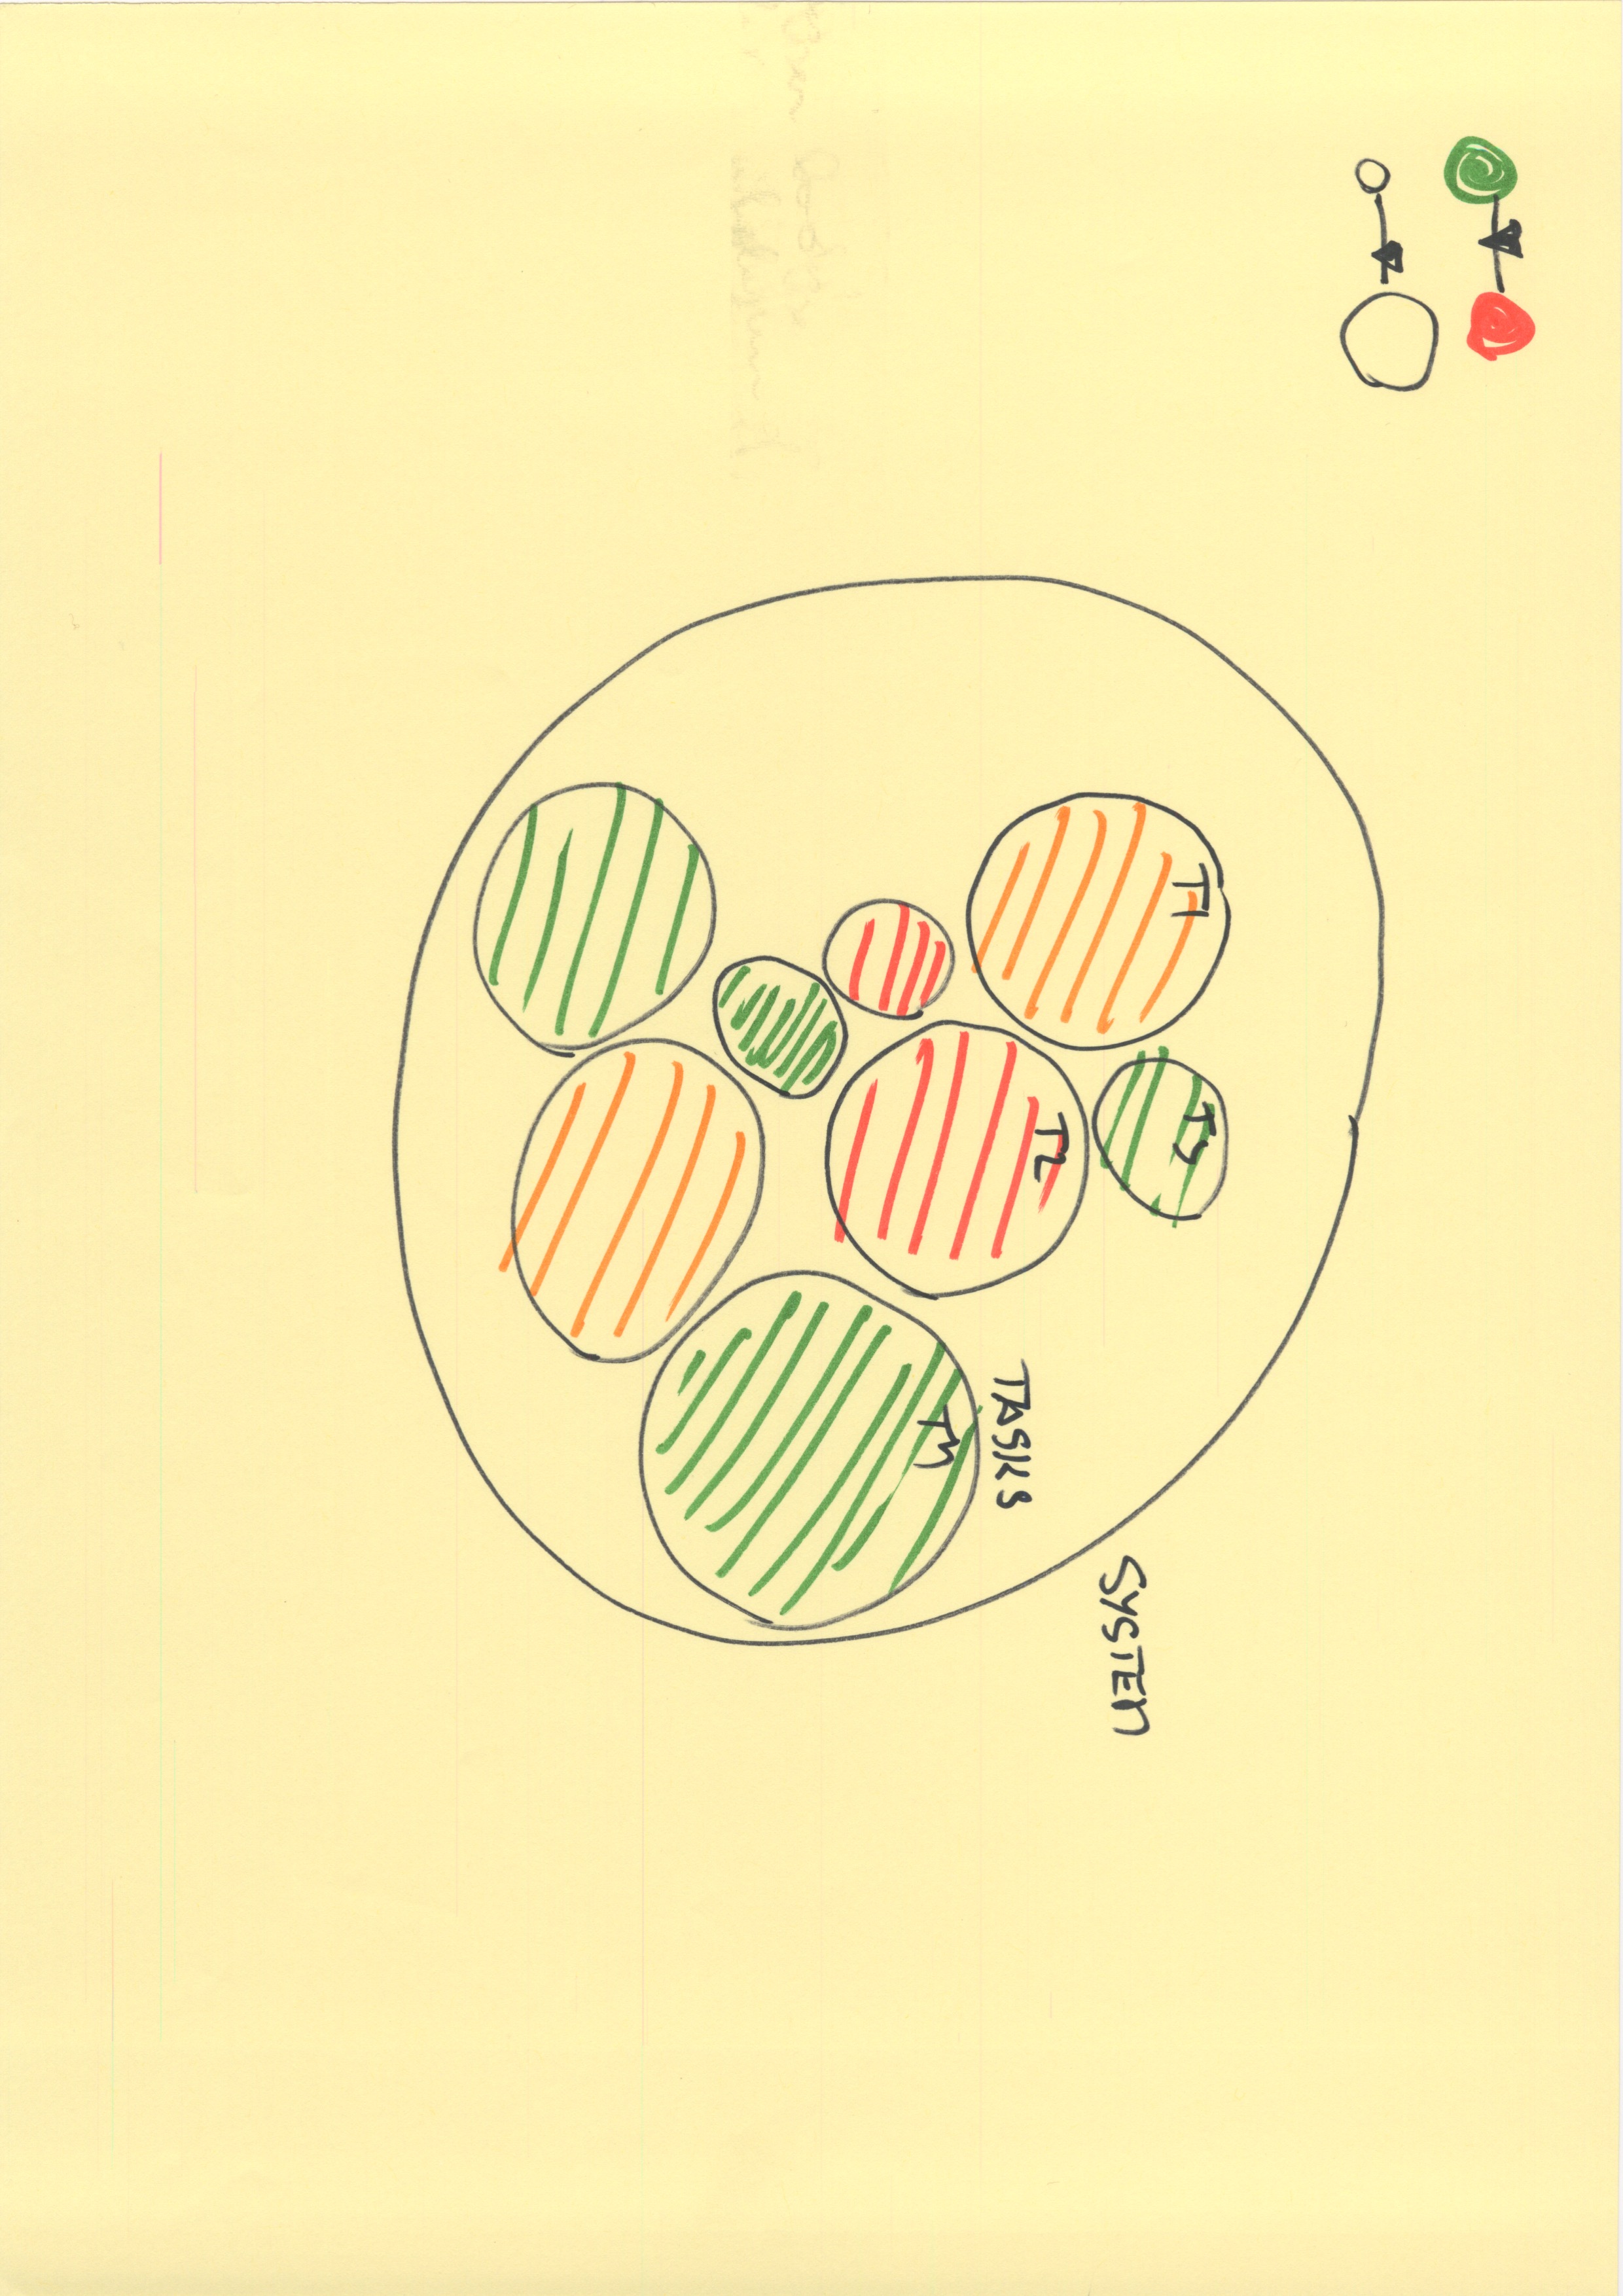 T1
T3
SYSTEM
T2
TASKS
Tn